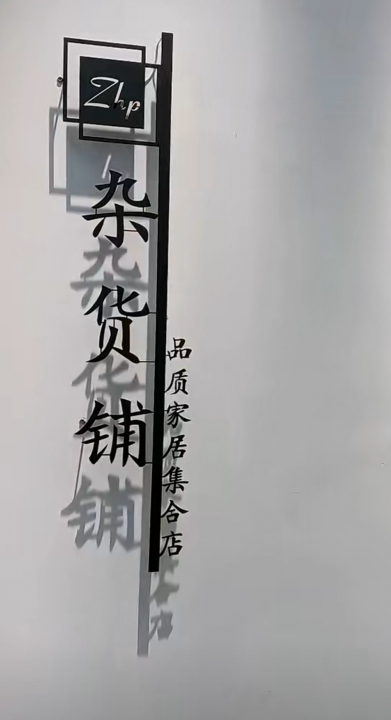 Zhp
杂货铺
品质家居集合店